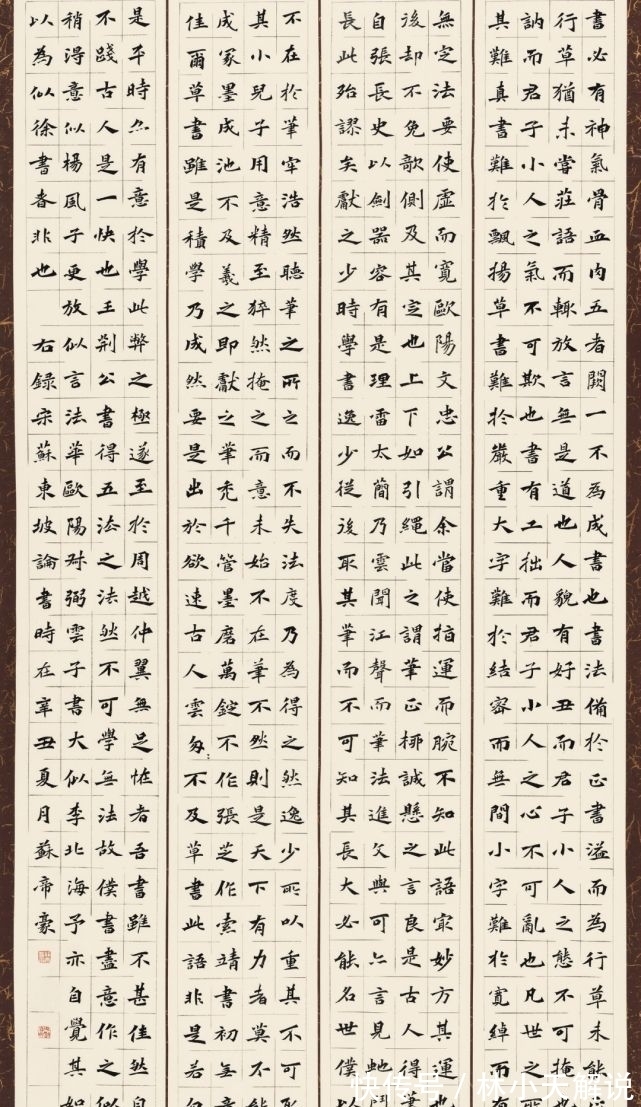 書必有神氣骨血肉五者闕一不為成書也書法備於正書溢而為行草未能
行草猶未嘗莊語而輒放言無是道也人貌有好丑而君子小人之態不可掩也
訥而君子小人之氣不可欺也書有工拙而君子小人之心不可亂也凡世之
其難真書難於飄揚草書難於嚴重大字難於結密而無間小字難於寬綽而有
無定法要使虛而寬歐陽文忠公謂余當使指運而腕不知此語寂妙方其運也
後却不免欹側及其定也上下如引繩此之謂筆正柳誠懸之言良是古人得筆
自張長史以劍器容有是理雷太簡乃雲聞江聲而筆法進文與可亦言見虵鬥
長此殆謬矣獻之少時學書逸少從後取其筆而不可知其長大必能名世僕以
不在於筆牢浩然聽筆之所之而不失法度乃為得之然逸少所以重其不可
其小兒子用意精至猝然掩之而意未始不在筆不然則是天下有力者莫不能
成冢墨成池不及羲之即獻之筆禿千管墨磨萬錠不作張芝作索靖書初無意
佳爾草書雖是積學乃成然要是出於欲速古人雲匆〻不及草書此語非是若
是平時亦有意於學此弊之極遂至於周越仲翼無足怪者吾書雖不甚佳然自
不踐古人是一快也王荊公書得五法之法然不可學無法故僕書盡意作之似
稍得意似楊風子更放似言法華歐陽叔弼雲子書大似李北海予亦自覺其如
以為似徐書者非也 右錄宋蘇東坡論書時在辛丑夏月蘇帝豪
快传号 / 林小夫解说